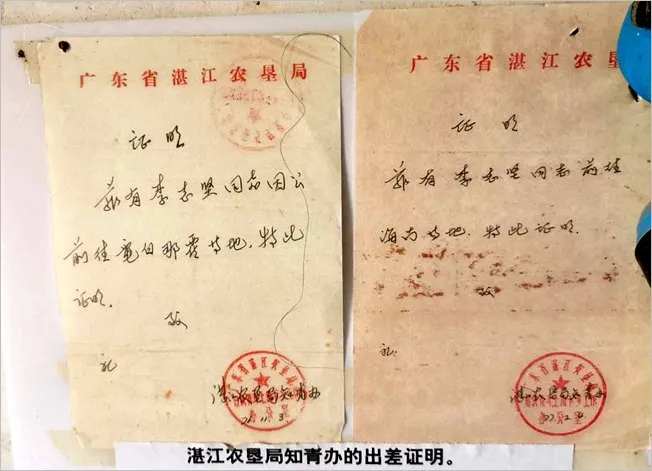 广东省湛江农垦局
证明
兹有李志坚同志因公
前往电白那霍等地，特此
证明。
致
礼
湛江农垦局知青办
广东省湛江农垦
证明
兹有李志坚同志前往
海南等地，特此证明。
致
礼
湛江农垦局知青办
湛江农垦局知青办的出差证明。